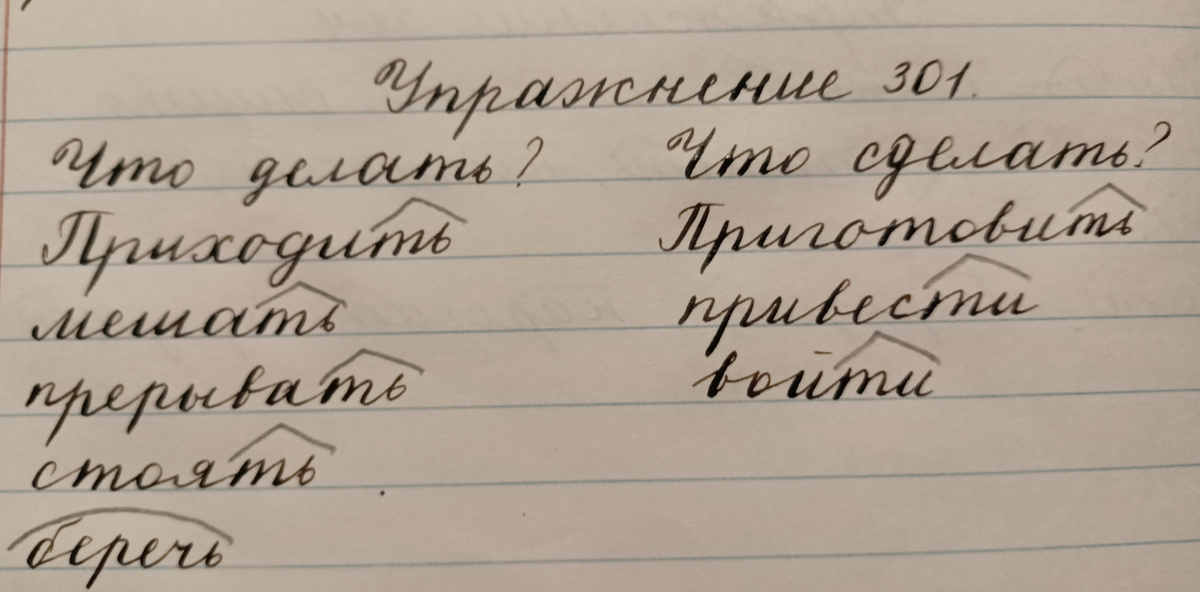 Упражнение 301.
Что делать? Что сделать?
Приходить Приготовить
мешать привести
прерывать войти
стоять
беречь